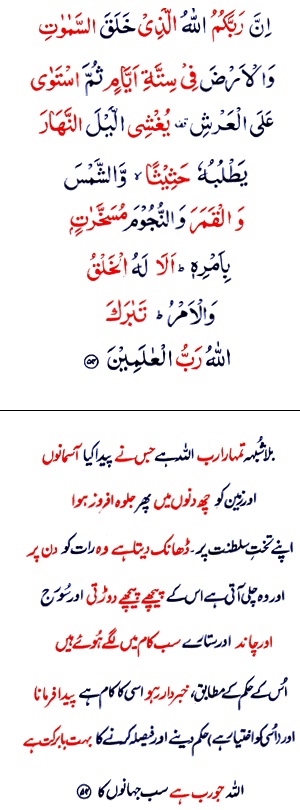 اِنَّ رَبَّكُمُ اللهُ الَّذِىْ خَلَقَ السَّمٰوٰتِ
وَالْاَرْضَ فِىْ سِتَّةِ اَيَّامٍ ثُمَّ اسْتَوٰى
عَلَى الْعَرْشِ قف يُغْشِى الَّيْلَ النَّهَارَ
يَطْلُبُهٗ حَثِيْثًا ۙ وَّالشَّمْسَ
وَالْقَمَرَ وَالنُّجُوْمَ مُسَخَّرٰتٍۭ
بِاَمْرِهٖ ؕ اَلَا لَهُ الْخَلْقُ
وَالْاَمْرُ ؕ تَبٰرَكَ
اللهُ رَبُّ الْعٰلَمِيْنَ ﴿۵۴﴾
بلاشُبہہ تمہارا رب اللہ ہے جس نے پیدا کیا آسمانوں
اور زمین کو چھ دنوں میں پھر جلوہ افروز ہوا
اپنے تختِ سلطنت پر۔ ڈھانک دیتا ہے وہ رات کو دن پر
اور وہ چلی آتی ہے اس کے پیچھے پیچھے دوڑتی اور سُورج
اور چاند اور ستارے سب کام میں لگے ہُوئے ہیں
اُس کے حکم کے مطابق، خبردار ہو اسی کا کام ہے پیدا فرمانا
اور (اُسی کو اختیار ہے) حکم دینے اور فیصلہ کرنے کا بہت بابرکت ہے
اللہ جو رب ہے سب جہانوں کا ﴿۵۴﴾